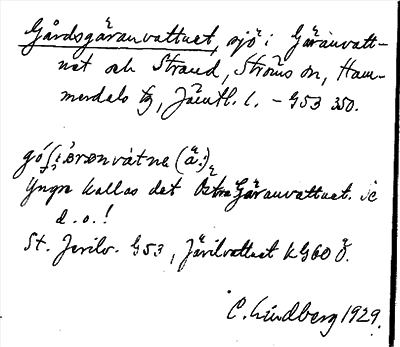 Gårdsgäranvattnet, sjö i Gäranvatt-
net och Strand, Ströms sn, Ham-
merdals tg, Jämtl. l. – G53 350.
(ä.)
Yngre kallas det Östra Gäranvattnet. ic
d. o.!
St. Jerilv. G53, Järilvattnet KG60 Ö.
C. Lindberg 1929.